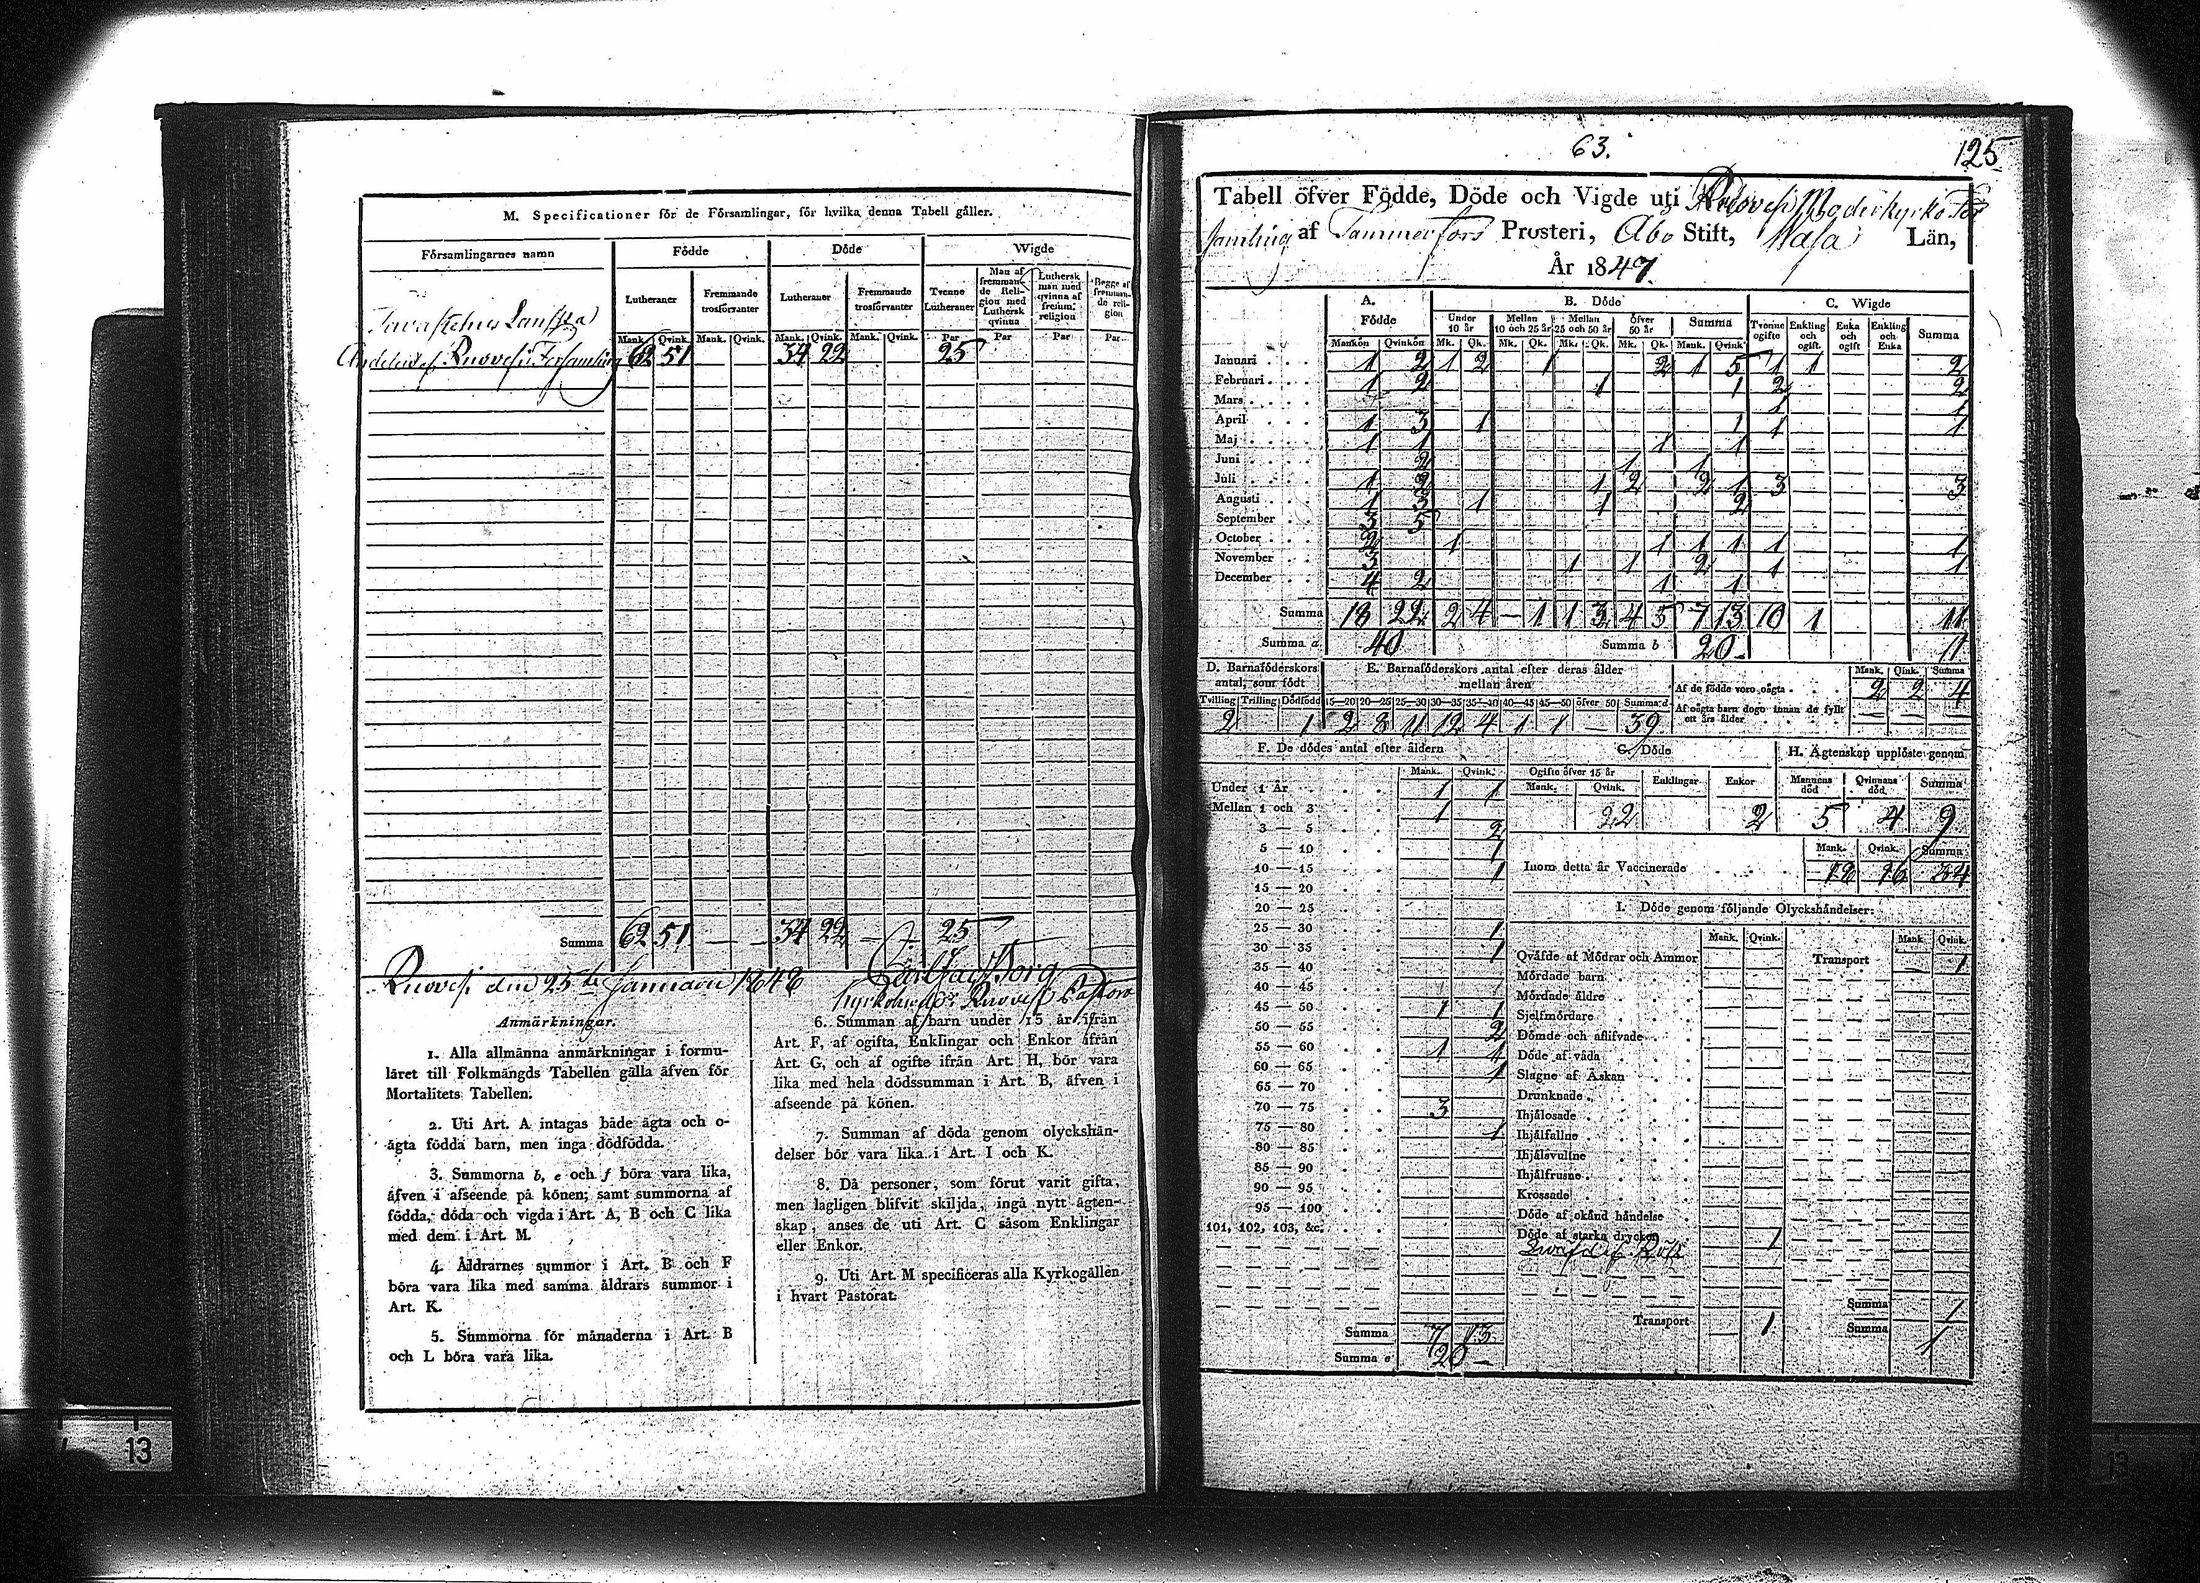 M. Specificationer för de Församlingar, för hvilka denna Tabell gäller.
Församlingarnes namn | Födde | Döde | Wigde
Lutheraner | Fremmande trosförvanter | Lutheraner | Fremmande trosförvanter | Tvenne Lutheraner | Man af fremmande Religion med Luthersk qvinna | Luthersk man med qvinna af fremm. religion | Begge af fremmande religion
Mank. Qvink. Mank. Qvink. Mank. Qvink. Mank. Qvink. Par Par Par Par
Tavastehus Länska
Andelen af Ruovesi Församling 62 51 34 22 25
Summa 62 51 — — 34 22 — 25
Ruovesi den 25te Januarii 1848 Carl Jac. Borg
Kyrkoherde i Ruovesi Pastorat
Anmärkningar.
1. Alla allmänna anmärkningar i formu-
läret till Folkmängds Tabellen gälla äfven för
Mortalitets Tabellen.
2. Uti Art. A intagas både ägta och o-
ägta födda barn, men inga dödfödda.
3. Summorna b, e och f böra vara lika,
äfven i afseende på könen; samt summorna af
födda, döda och vigda i Art. A, B och C lika
med dem i Art. M.
4. Åldrarnes summor i Art. B och F
böra vara lika med samma åldrars summor i
Art. K.
5. Summorna för månaderna i Art. B
och L böra vara lika.
6. Summan af barn under 15 år ifrån
Art. F, af ogifta, Enklingar och Enkor ifrån
Art. G, och af ogifte ifrån Art. H, bör vara
lika med hela dödssumman i Art. B, äfven i
afseende på könen.
7. Summan af döda genom olyckshän-
delser bör vara lika i Art. I och K.
8. Då personer, som förut varit gifta,
men lagligen blifvit skiljda, ingå nytt ägten-
skap, anses de uti Art. C såsom Enklingar
eller Enkor.
9. Uti Art. M specificeras alla Kyrkogällen
i hvart Pastorat.
13
63.
125
Tabell öfver Födde, Döde och Vigde uti Ruovesi Moderkyrko För
samling af Tammerfors Prosteri, Åbo Stift, Vasa Län,
År 1847.
A. Födde | B. Döde | C. Wigde
Under 10 år | Mellan 10 och 25 år | Mellan 25 och 50 år | öfver 50 år | Summa | Tvenne ogifte | Enkling och ogift | Enka och ogift | Enkling och Enka | Summa
Mankön Qvinkön Mk. Qk. Mk. Qk. Mk. Qk. Mk. Qk. Mank. Qvink.
Januari 1 2 1 2 1 2 1 5 1 1 2
Februari 1 2 1 1 2 2
Mars 1 1
April 1 3 1 1 1 1
Maj 1 1 1 1
Juni 2 1 1
Juli 1 2 1 2 2 1 3 3
Augusti 1 3 1 1 2
September 3 5
October 2 1 1 1 1 1 1
November 3 1 1 2 1 1
December 4 2 1 1
Summa 18 22 2 4 — 1 1 3 4 5 7 13 10 1 11
Summa a 40 Summa b 20 11
D. Barnaföderskors antal, som födt
Tvilling Trilling Dödfödd
2 1
E. Barnaföderskors antal efter deras ålder mellan åren
15—20 20—25 25—30 30—35 35—40 40—45 45—50 öfver 50 Summa d
2 8 11 12 4 1 1 — 39
Mank. Qink. Summa
Af de födde voro oägta 2 2 4
Af oägta barn dogo innan de fyllt ett års ålder — — —
F. De dödes antal efter åldern
Mank. Qvink.
Under 1 År 1 1
Mellan 1 och 3 1
3 — 5 2
5 — 10 1
10 — 15 1
15 — 20
20 — 25
25 — 30 1
30 — 35 1
35 — 40
40 — 45
45 — 50 1 1
50 — 55 2
55 — 60 1 1
60 — 65 1
65 — 70
70 — 75 3
75 — 80 1
80 — 85
85 — 90
90 — 95
95 — 100
101, 102, 103, &c.
Summa 7 13
Summa e 20
G. Döde
Ogifte öfver 15 år Enklingar Enkor
Mank. Qvink.
2
H. Ägtenskap upplöste genom
Mannens död Qvinnans död Summa
5 4 9
Mank. Qvink. Summa
Inom detta år Vaccinerade
I. Döde genom följande Olyckshändelser:
Mank. Qvink. Mank. Qvink.
Qväfde af Mödrar och Ammor
Mördade barn
Mördade äldre
Sjelfmördare
Dömde och aflifvade
Döde af våda
Slagne af Åskan
Drunknade
Ihjälosade
Ihjälfallne
Ihjälsvultne
Ihjälfrusne
Krossade
Döde af okänd händelse
Döde af starka drycker
Transport — 1
Transport — 1
Summa 1
Summa 1